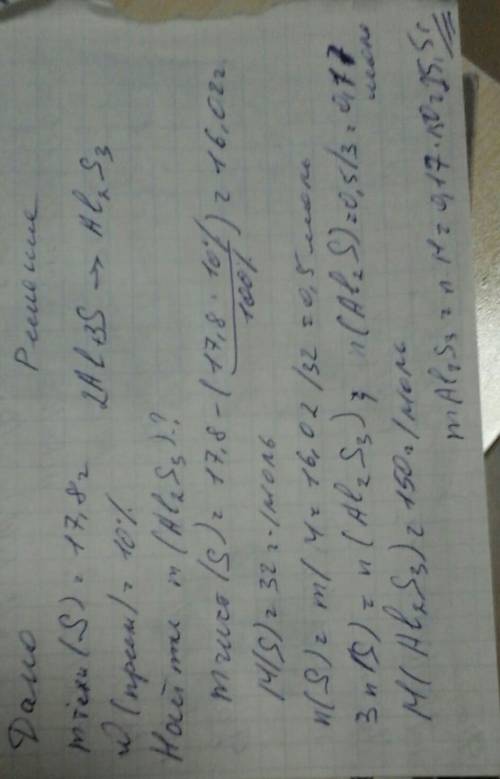 Дано Решение
m техн (S) = 17,8 г 2Al+3S → Al₂S₃
ω (прим) = 10%
Найти m (Al₂S₃)-?
m чист (S) = 17,8 - (17,8 · 10% / 100%) = 16,02 г.
M(S) = 32 г/моль
n(S) = m/M = 16,02/32 = 0,5 моль
3n(S) = n(Al₂S₃); n(Al₂S)=0,5/3 = 0,17 моль
M(Al₂S₃) = 150 г/моль
m Al₂S₃ = n M = 0,17·150=25,5 г